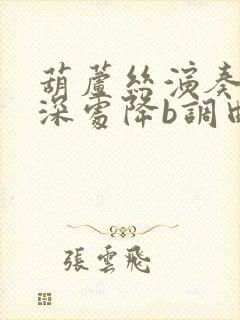 葫蘆絲演奏
深處降b調曲
張雲飛